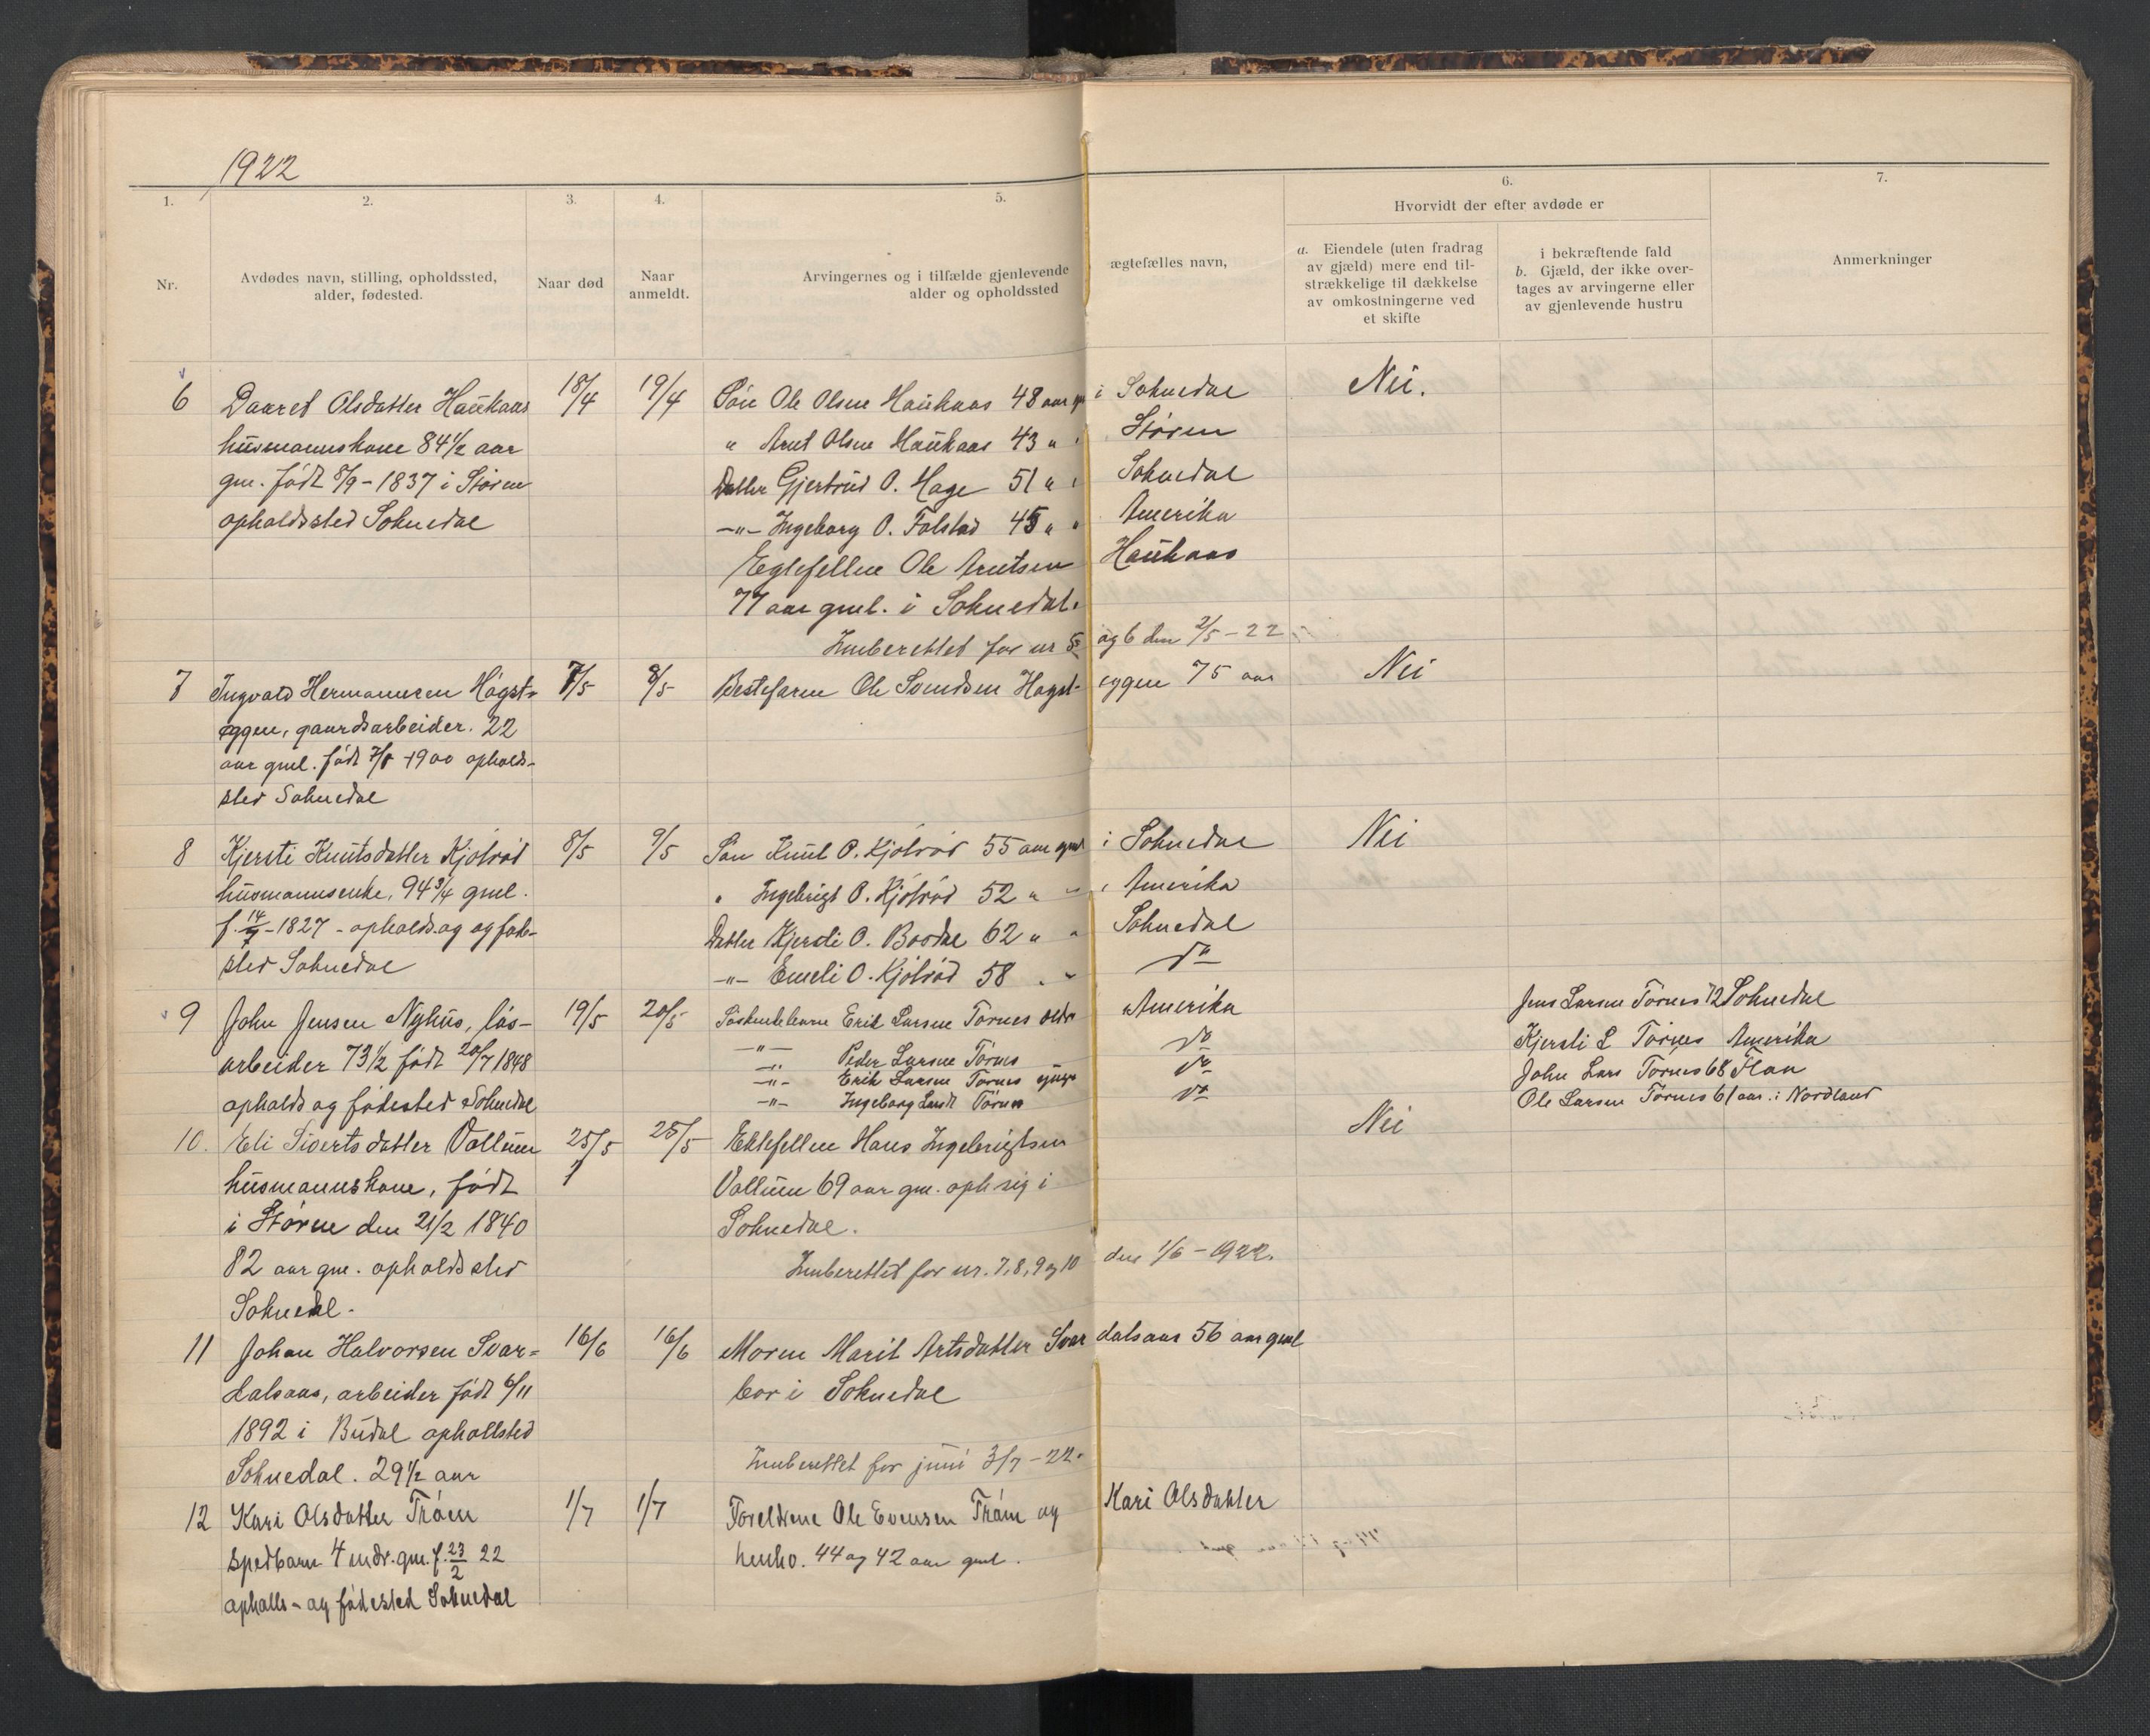 1922
1.
2.
3.
4.
5.
6.
7.
Nr.
Avdødes navn, stilling, opholdssted,
alder, fødested.
Naar død
Naar
anmeldt.
Arvingernes og i tilfælde gjenlevende ægtefælles navn,
alder og opholdssted
Hvorvidt der efter avdøde er
a. Eiendele (uten fradrag
av gjæld) mere end til-
strækkelige til dækkelse
av omkostningerne ved
et skifte
i bekræftende fald
b. Gjæld, der ikke over-
tages av arvingerne eller
av gjenlevende hustru
Anmerkninger
6
Daaret Olsdatter Haukaas
husmannskone 84½ aar
gm. født 8/9 - 1837 i Støren
opholdssted Soknedal
18/4
19/4
Søn Ole Olsen Haukaas 48 aar gm i Soknedal
" Arnt Olsen Haukaas 43 " " Støren
Datter Gjertrud O. Hage 51 " " Soknedal
-"- Ingeborg O. Folstad 45 " " Amerika
Egtefellen Ole Arntsen Haukaas
77 aar gml. i Soknedal.
Innberettet for nr 5 og 6 den 2/5 - 22
Nei.
7
Ingvald Hermannsen Høgst-
eggen, gaardsarbeider. 22
aar gml. født 7/5 1900 opholds-
sted Soknedal
7/5
8/5
Bestefaren Ole Svendsen Høgsteggen 75 aar
Nei
8
Kjersti Knutsdatter Kjølrød
husmannsenke, 94¾ gml.
f. 14/7 - 1827 - opholds og og føde-
sted Soknedal
8/5
9/5
Søn Knut O. Kjølrød 55 aar gml i Soknedal
" Ingebrigt O. Kjølrød 52 " " i Amerika
Datter Kjersti O. Bosdal 62 " " Soknedal
-"- Emeli O. Kjølrød 58 " " do
Nei
9
John Jensen Nyhus, løs-
arbeider 73½ født 20/7 1848
opholds og fødested Soknedal
19/5
20/5
Søskendebarn Erik Larsen Tørnes eldr Amerika
-"- Peder Larsen Tørnes do
-"- Erik Larsen Tørnes yngr do
-"- Ingeborg Larsdt Tørnes do
Jens Larsen Tørnes 72 Soknedal
Kjersti L Tørnes Amerika
John Lars Tørnes 68 Flaa
Ole Larsen Tørnes 61 aar i Nordland
10.
Eli Sivertsdatter Vollum
husmannskone, født
i Støren den 21/2 1840
82 aar gm. opholdssted
Soknedal.
25/5
25/5
Ektefellen Hans Ingebrigtsen
Vollum 69 aar gm. oph. sig i
Soknedal.
Innberettet for nr. 7, 8, 9 og 10 den 1/6 - 1922.
Nei
11
Johan Halvorsen Svar-
dalsaas, arbeider født 6/11
1892 i Budal opholdsted
Soknedal. 29½ aar
16/6
16/6
Moren Marit Artsdatter Svardalsaas 56 aar gml
bor i Soknedal
Innberettet for juni 3/7 - 22.
12
Kari Olsdatter Trøen
spedbarn 4 mdr. gm. f. 23/2 22
opholls- og fødested Soknedal
1/7
1/7
Foreldrene Ole Evensen Trøen og Kari Olsdatter
henho. 44 og 42 aar gml.